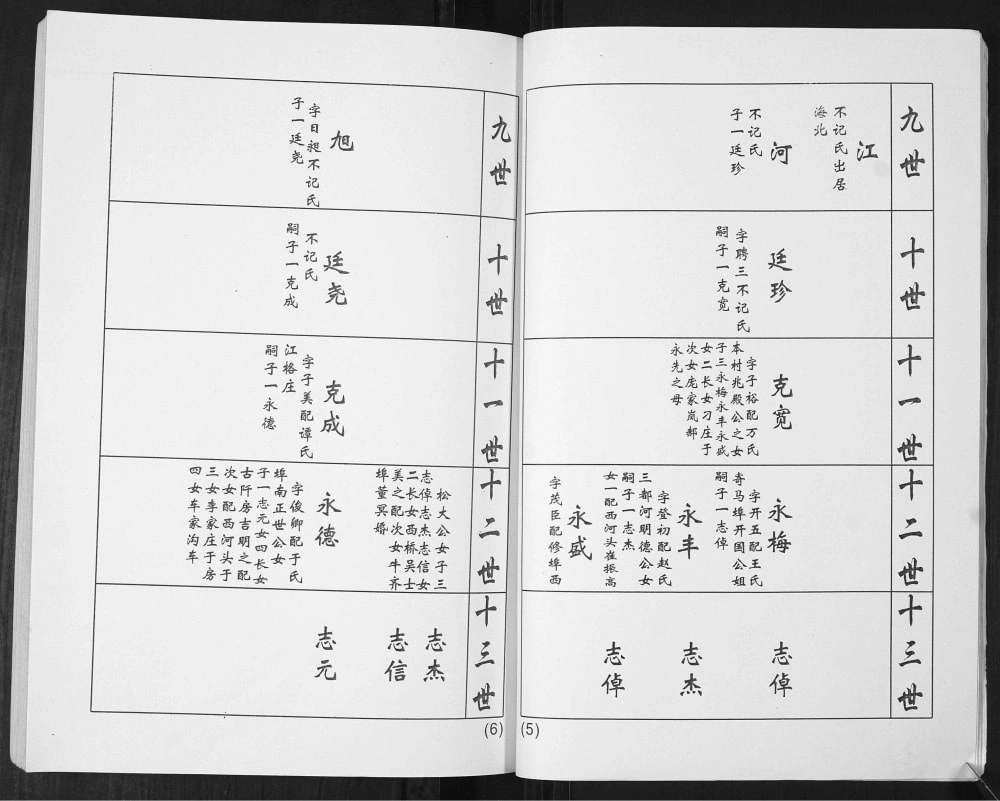 九世
江
不记氏出居
海北
河
不记氏
子一廷珍
十世
廷珍
字聘三不记氏
嗣子一克宽
十一世
克宽
字子裕配万氏
本村兆殿公之女
子三永梅永丰永盛
女二长女刁庄于
次女庞家岚郝
永先之母
十二世
永梅
字开五配王氏
寄马埠开国公姐
嗣子一志倬
永丰
字登初配赵氏
三都河明德公女
嗣子一志杰
女一配西河头崔振高
永盛
字茂臣配修埠西
十三世
志倬
志杰
志倬
(5)
九世
旭
字日昶不记氏
子一廷尧
十世
廷尧
不记氏
嗣子一克成
十一世
克成
字子美配谭氏
江格庄
嗣子一永德
十二世
松大公女子三
志倬志杰志信女
二长女西桥吴士
美之配次女牛齐
埠董冥婚
永德
字俊卿配于氏
埠南正世公女
子一志元女四长女
古阡房吉明之配
次女配西河头于
三女李家庄于房
四女车家沟车
十三世
志杰
志信
志元
(6)